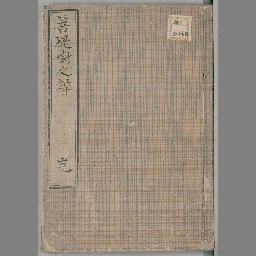 菩提樹之辯 完